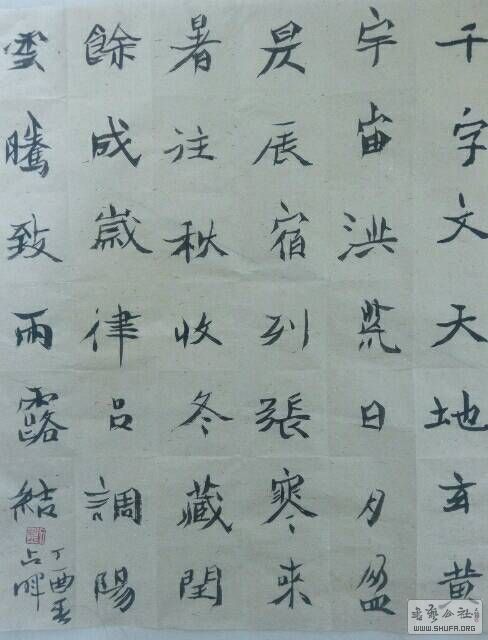 千字文天地玄黄
宇宙洪荒日月盈
昃辰宿列張寒来
暑往秋收冬藏閏
餘成歲律呂調陽
雲騰致雨露結
丁酉
书艺公社
WWW.SHUFA.ORG